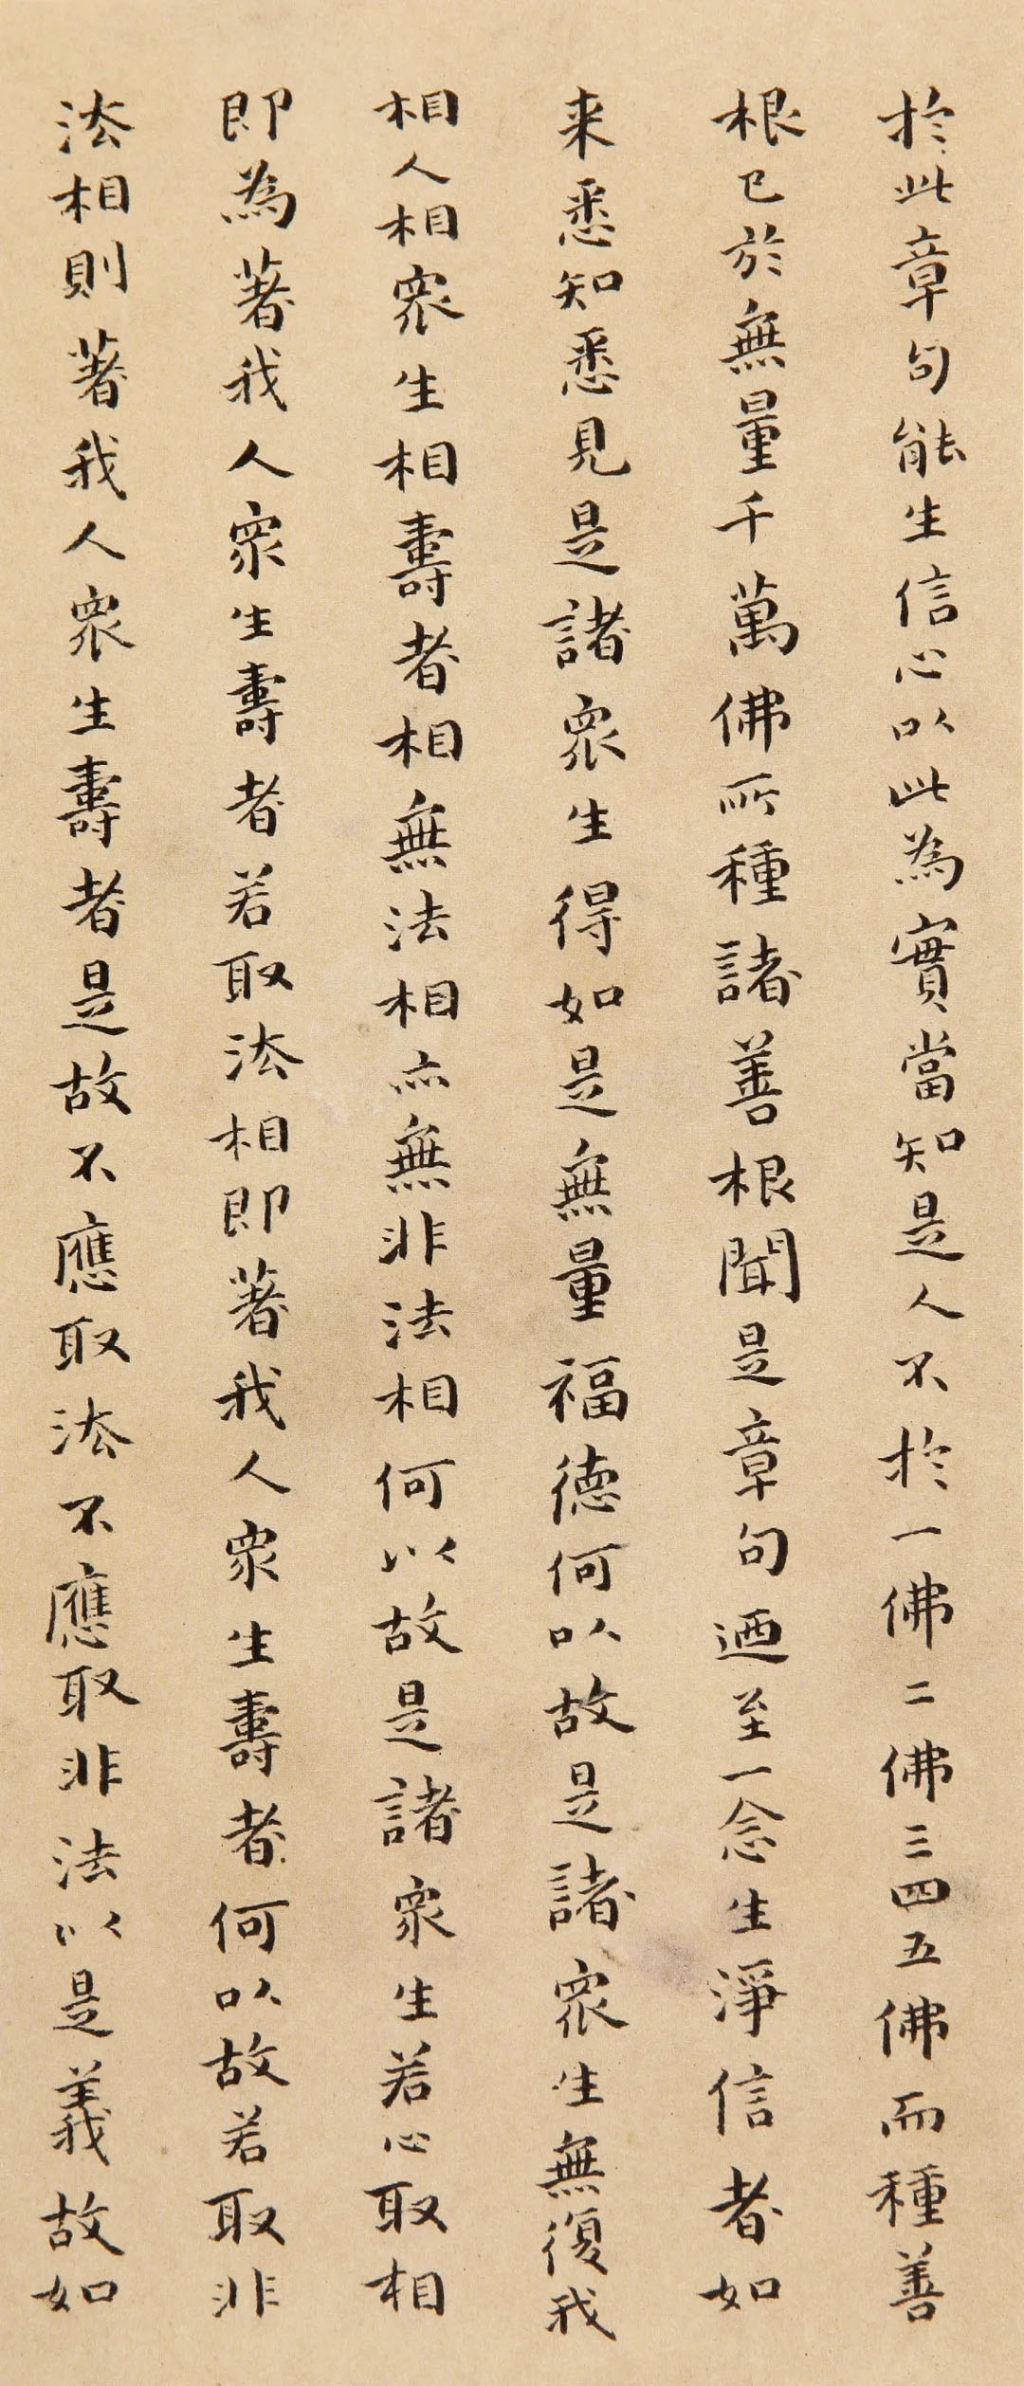 於此章句能生信心以此為實當知是人不於一佛二佛三四五佛而種善
根已於無量千萬佛所種諸善根聞是章句迺至一念生淨信者如
来悉知悉見是諸衆生得如是無量福德何以故是諸衆生無復我
相人相衆生相壽者相無法相亦無非法相何以故是諸衆生若心取相
即為著我人衆生壽者若取法相即著我人衆生壽者何以故若取非
法相則著我人衆生壽者是故不應取法不應取非法以是義故如